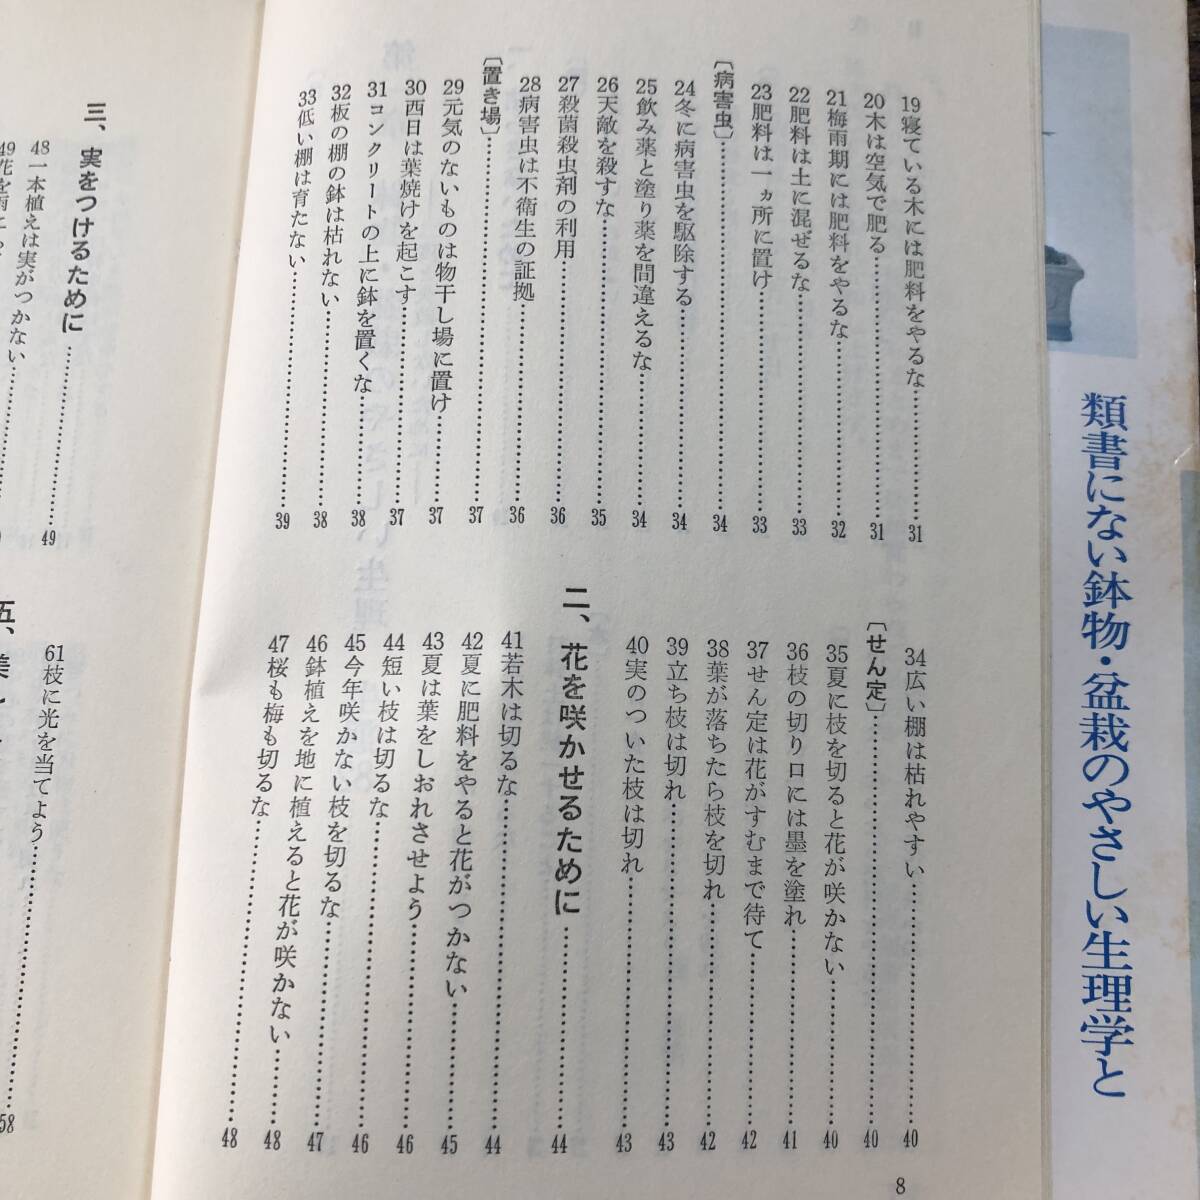 類書にない鉢物・盆栽のやさしい生理学と
19寝ている木には肥料をやるな……31
20木は空気で肥る……31
21梅雨期には肥料をやるな……32
22肥料は土に混ぜるな……33
23肥料は一ヵ所に置け……33
〔病害虫〕……34
24冬に病害虫を駆除する……34
25飲み薬と塗り薬を間違えるな……34
26天敵を殺すな……35
27殺菌殺虫剤の利用……36
28病害虫は不衛生の証拠……36
〔置き場〕……37
29元気のないものは物干し場に置け……37
30西日は葉焼けを起こす……37
31コンクリートの上に鉢を置くな……38
32板の棚の鉢は枯れない……38
33低い棚は育たない……39
34広い棚は枯れやすい……40
〔せん定〕……40
35夏に枝を切ると花が咲かない……40
36枝の切り口には墨を塗れ……41
37せん定は花がすむまで待て……42
38葉が落ちたら枝を切れ……42
39立ち枝は切れ……43
40実のついた枝は切れ……43
二、花を咲かせるために……44
41若木は切るな……44
42夏に肥料をやると花がつかない……45
43夏は葉をしおれさせよう……46
44短い枝は切るな……46
45今年咲かない枝を切るな……47
46鉢植えを地に植えると花が咲かない……48
47桜も梅も切るな……48
8
三、実をつけるために……49
48一本植えは実がつかない……49
49花を雨に
61枝に光を当てよう……58
五、美し